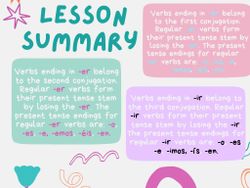 LESSON
SUMMARY
Verbs ending in -ar belong
to the first conjugation.
Regular -ar verbs form
their present tense stem by
losing the -ar. The present
tense endings for regular
verbs are
Verbs ending in -er belong
to the second conjugation.
Regular -er verbs form
their present tense stem
by losing the -er The
present tense endings for
regular -er verbs are: -o
-es -e, -emos, -éis -en.
Verbs ending in -ir belong to
the third conjugation. Regular
-ir verbs form their present
tense stem by losing the -ir
The present tense endings for
regular -ir verbs are -o -es
-e -imos. -ís -en.